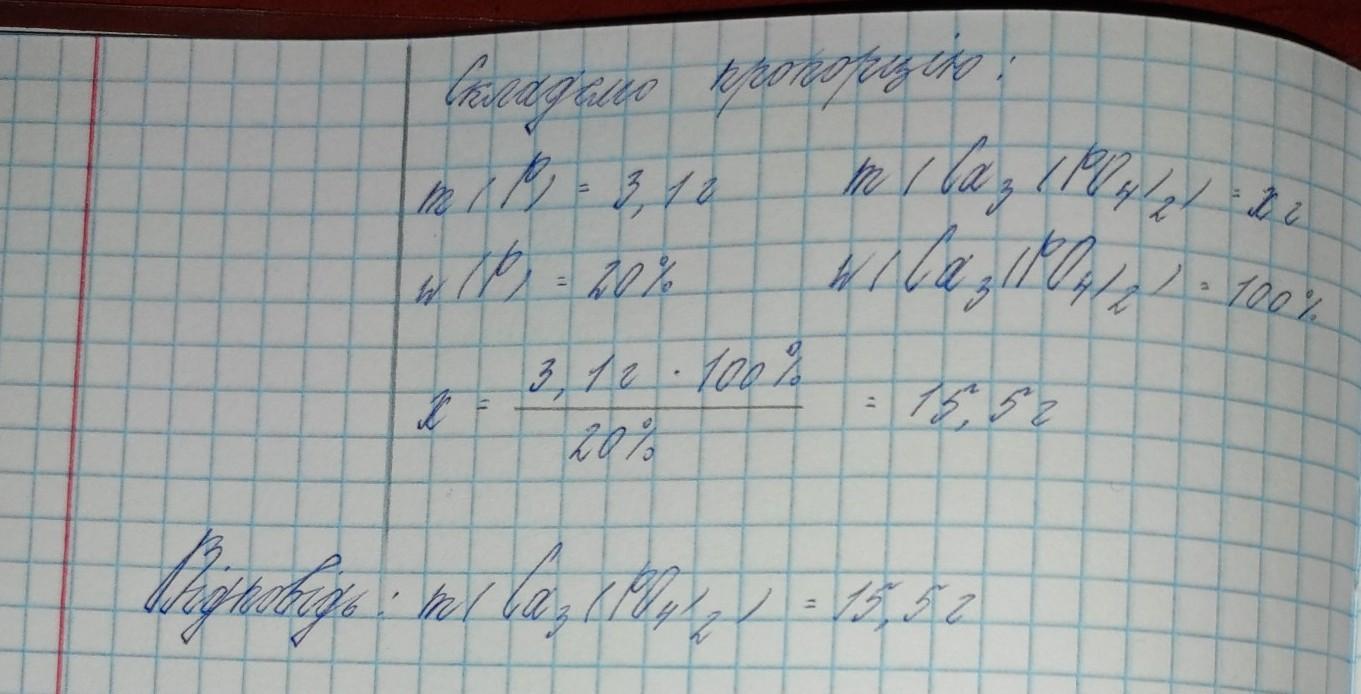 Складемо пропорцію:
m(P) = 3,1г m(Ca₃(PO₄)₂) = x г
w(P) = 20% w(Ca₃(PO₄)₂) = 100%
x = 3,1г · 100% / 20% = 15,5г
Відповідь: m(Ca₃(PO₄)₂) = 15,5г